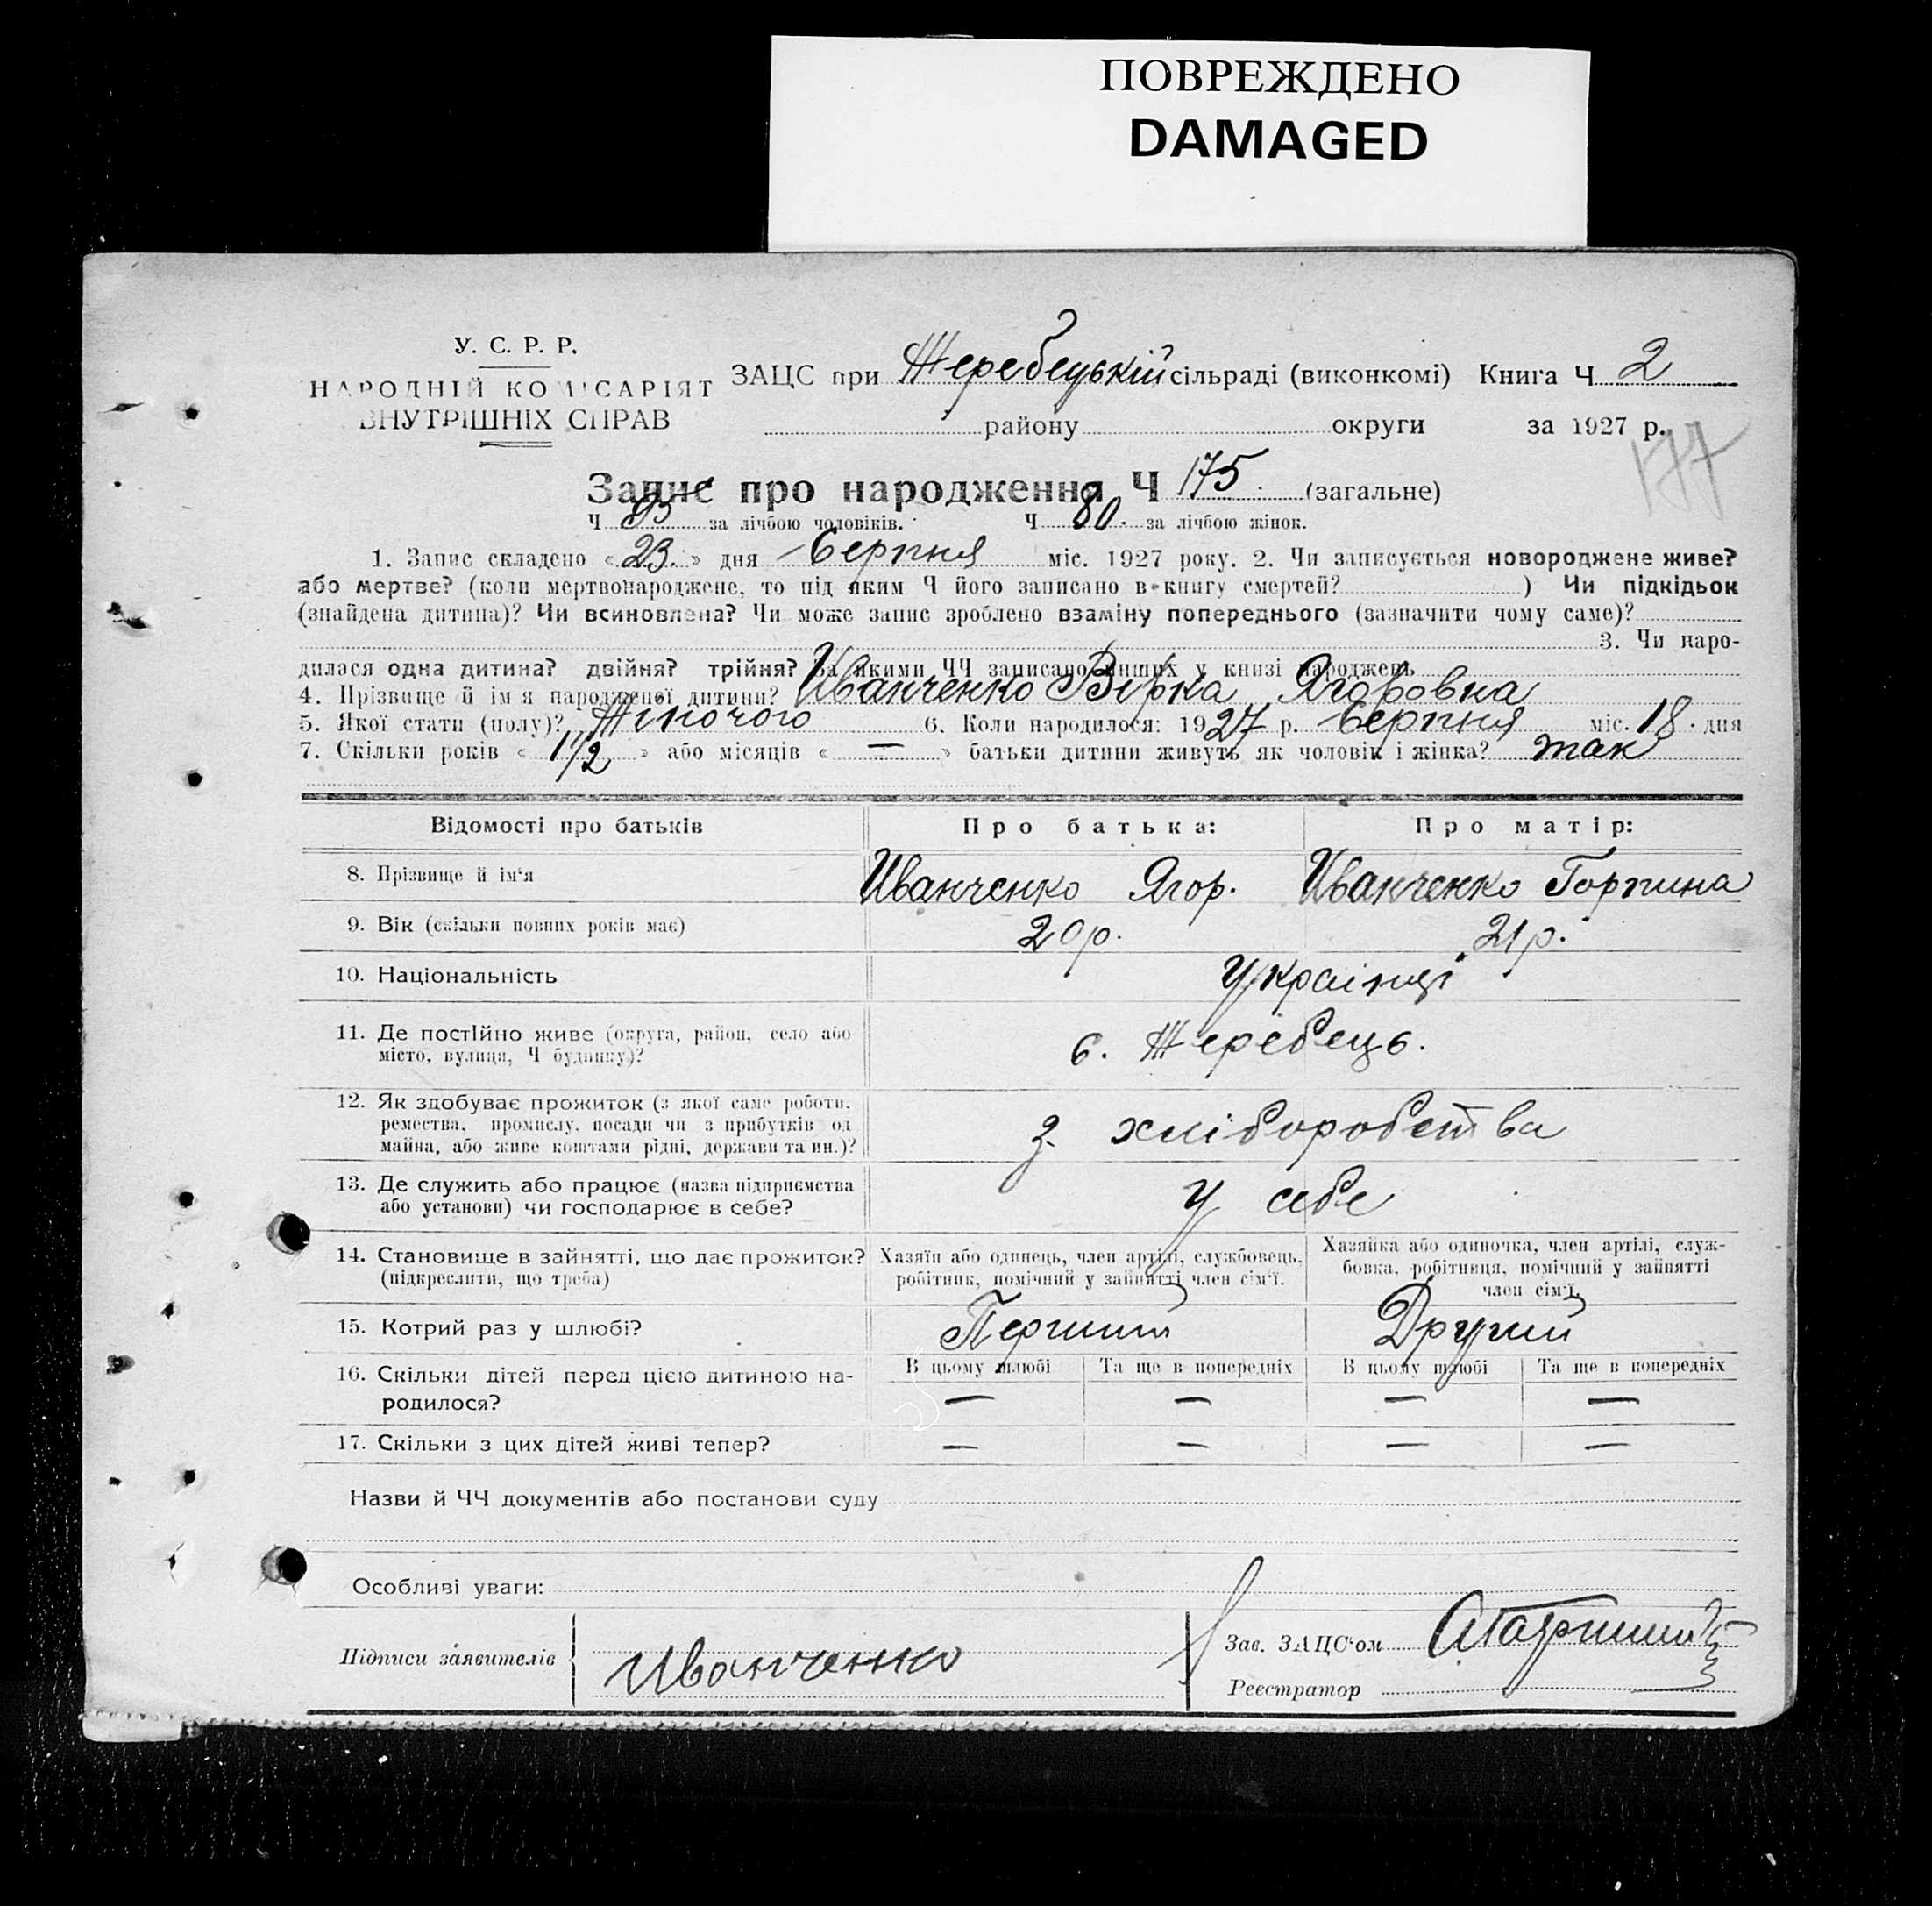 ПОВРЕЖДЕНО
DAMAGED
У. С. Р. Р.
НАРОДНІЙ КОМІСАРІЯТ
ВНУТРІШНІХ СПРАВ
ЗАЦС при Жеребецькій сільраді (виконкомі) Книга Ч 2
району округи за 1927 р.
177
Запис про народження Ч 175. (загальне)
Ч за лічбою чоловіків. Ч 80. за лічбою жінок.
1. Запис складено «23.» дня Серпня міс. 1927 року. 2. Чи записується новороджене живе?
або мертве? (коли мертвонароджене, то під яким Ч його записано в книгу смертей? ) Чи підкідьок
(знайдена дитина)? Чи всиновлена? Чи може запис зроблено взаміну попереднього (зазначити чому саме)?
3. Чи наро-
дилася одна дитина? двійня? трійня? За якими ЧЧ записано инших у книзі народжень
4. Прізвище й ім'я народженої дитини? Иванченко Вірка Ягоровна
5. Якої стати (полу)? Жіночого 6. Коли народилося: 1927 р. Серпня міс. 18. дня
7. Скільки років « 1 1/2 » або місяців « — » батьки дитини живуть як чоловік і жінка? так
Відомості про батьків Про батька: Про матір:
8. Прізвище й ім'я Иванченко Ягор. Иванченко Горпина
9. Вік (скільки повних років має) 20 р. 21 р.
10. Національність Українці
11. Де постійно живе (округа, район, село або
місто, вулиця, Ч будинку)? с. Жеребець.
12. Як здобуває прожиток (з якої саме роботи,
ремества, промислу, посади чи з прибутків од
майна, або живе коштами рідні, держави та ин.)? З. хліборобства
13. Де служить або працює (назва підприємства
або установи) чи господарює в себе? У себе
14. Становище в зайнятті, що дає прожиток?
(підкреслити, що треба)
Хазяїн або одинець, член артілі, службовець,
робітник, помічний у зайнятті член сім'ї.
Хазяйка або одиночка, член артілі, служ-
бовка, робітниця, помічний у зайнятті
член сім'ї.
15. Котрий раз у шлюбі? Перший Другий
16. Скільки дітей перед цією дитиною на-
родилося?
В цьому шлюбі Та ще в попередніх В цьому шлюбі Та ще в попередніх
— — — —
17. Скільки з цих дітей живі тепер? — — — —
Назви й ЧЧ документів або постанови суду
Особливі уваги:
Підписи заявителів Иванченко
Зав. ЗАЦС'ом
Реєстратор